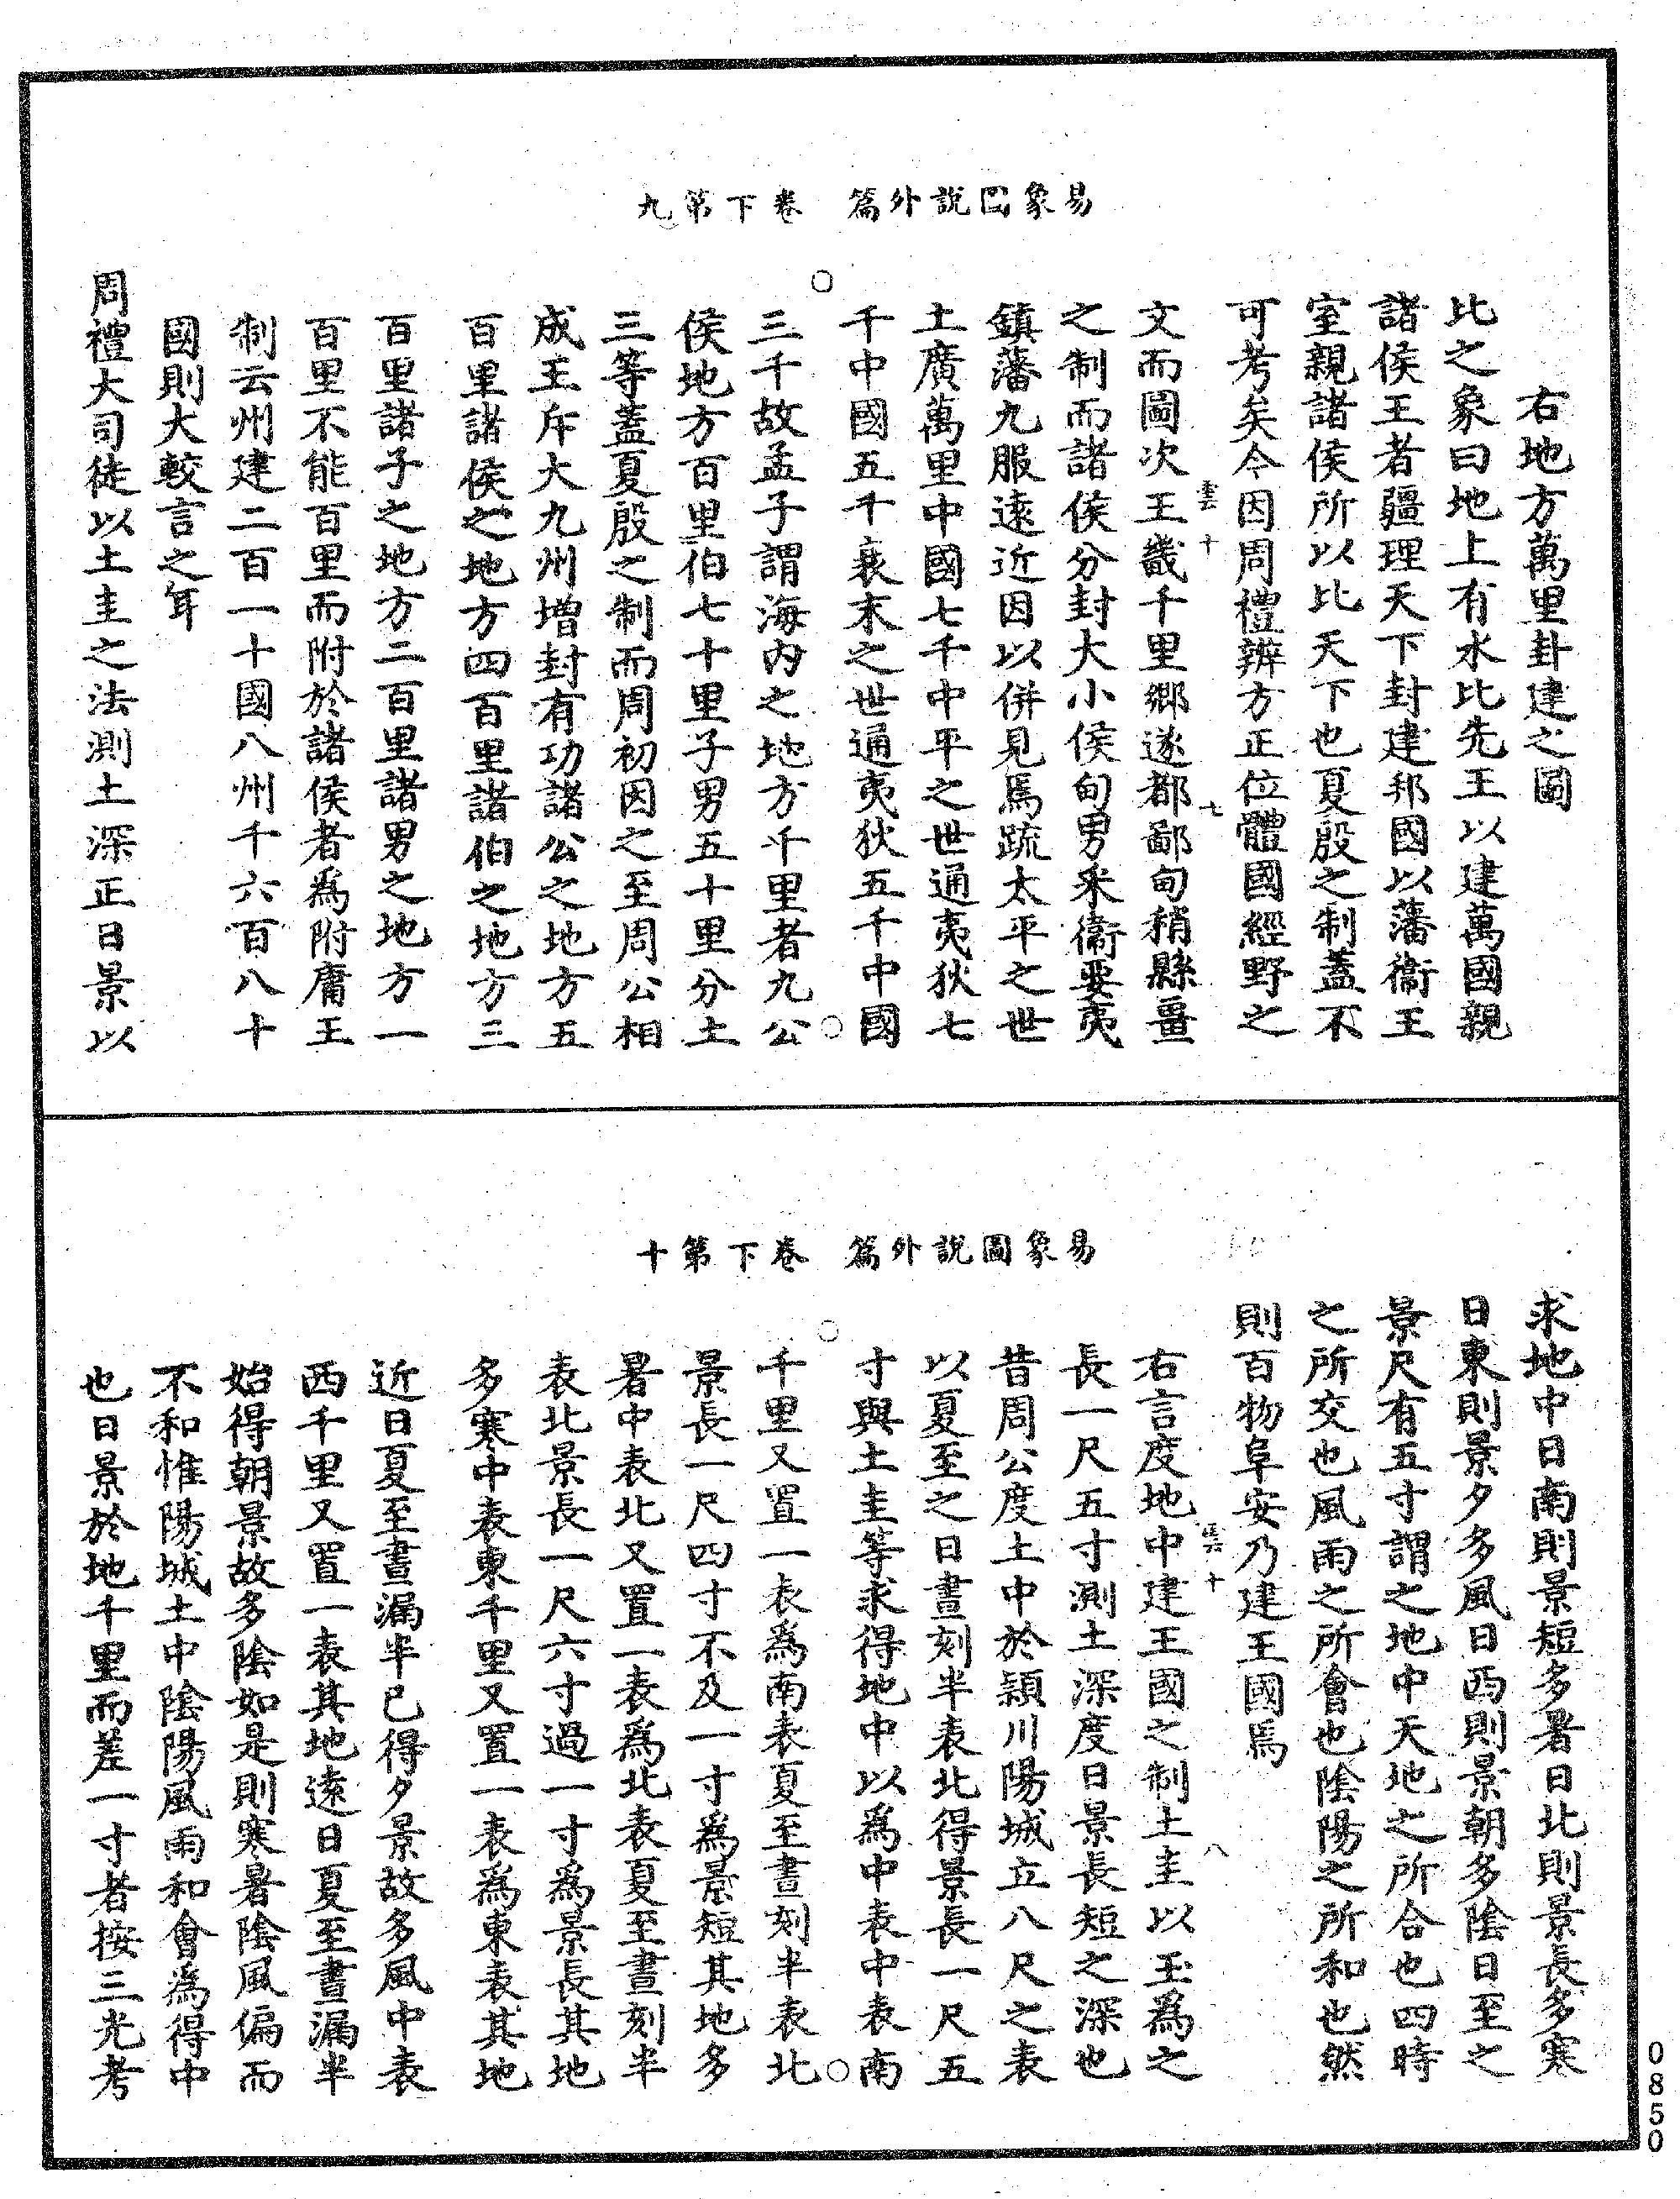 易象啚說外篇　卷下第九
右地方萬里卦建之圖
比之象曰地上有水比先王以建萬國親
諸侯王者疆理天下封建邦國以藩衞王
室親諸侯所以比天下也夏殷之制蓋不
可考矣今因周禮辨方正位體國經野之
文而圖次王畿千里鄉遂都鄙甸稍縣畺
之制而諸侯分封大小侯甸男采衞要夷
鎮藩九服遠近因以併見焉䟽太平之世
土廣萬里中國七千中平之世通夷狄七
千中國五千衰末之世通夷狄五千中國
三千故孟子謂海內之地方千里者九公
侯地方百里伯七十里子男五十里分土
三等蓋夏殷之制而周初因之至周公相
成王斥大九州增封有功諸公之地方五
百里諸侯之地方四百里諸伯之地方三
百里諸子之地方二百里諸男之地方一
百里不能百里而附於諸侯者爲附庸王
制云州建二百一十國八州千六百八十
國則大較言之年
周禮大司徒以土圭之法測土深正日景以
十
七
易象圖說外篇　卷下第十
求地中日南則景短多暑日北則景長多寒
日東則景夕多風日西則景朝多陰日至之
景尺有五寸謂之地中天地之所合也四時
之所交也風雨之所會也陰陽之所和也然
則百物阜安乃建王國焉
右言度地中建王國之制土圭以玉爲之
長一尺五寸測土深度日景長短之深也
昔周公度土中於潁川陽城立八尺之表
以夏至之日晝刻半表北得景長一尺五
寸與土圭等求得地中以爲中表中表南
千里又置一表爲南表夏至晝刻半表北
景長一尺四寸不及一寸爲景短其地多
暑中表北又置一表爲北表夏至晝刻半
表北景長一尺六寸過一寸爲景長其地
多寒中表東千里又置一表爲東表其地
近日夏至晝漏半已得夕景故多風中表
西千里又置一表其地遠日夏至晝漏半
始得朝景故多陰如是則寒暑陰風偏而
不和惟陽城土中陰陽風雨和會爲得中
也日景於地千里而差一寸者按三光考
十
八
0850